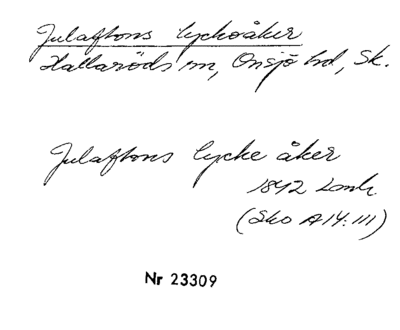 Julaftons lyckoåker
Hallaröds sn, Onsjö hd, Sk.
Julaftons lycke åker
1842 Lonk
(Sko A14:111)
Nr 23309